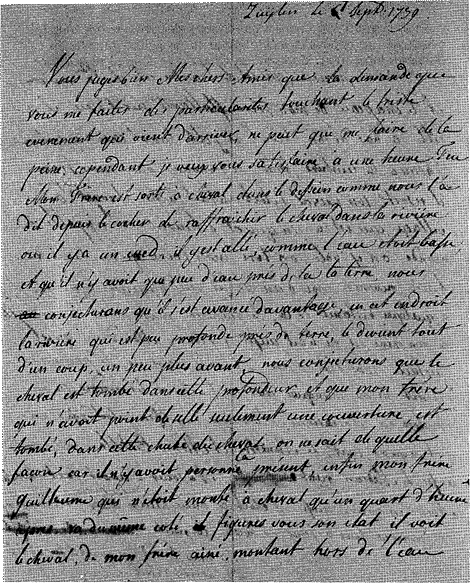 Zuylen le Sept. 1759
Vous jugés bien Mes chers Amis que la demande que
vous me faites des particularités touchant le triste
evenement qui vient d'arriver, ne peut que me faire de la
peine, cependant je veux vous satisfaire à une heure Feu
Mon Frere est sorti à cheval dans le dessein comme nous l'a
dit depuis le cocher de raffraicher le cheval dans la riviere
ou il y a un wed, il y est allé, comme l'eau etoit basse,
et qu'il n'y avoit que peu d'eau près de la terre nous
conjecturans qu'il s'est avancé davantage, en cet endroit
la riviere qui est peu profonde près de terre, le devient tout
d'un coup, un peu plus avant, nous conjecturons que le
cheval est tombé dans cette profondeur, et que mon frére
qui n'avoit point de selle seulement une couverture est
tombé, dans cette chute du cheval, on ne sait de quelle
façon car il n'y avoit personne la présent, enfin mon frère
Guillaume qui n'étoit monté à cheval qu'un quart d'heure
après va du meme coté, figurés vous son état il voit
le cheval, de mon frére ainé, montant hors de l'eau